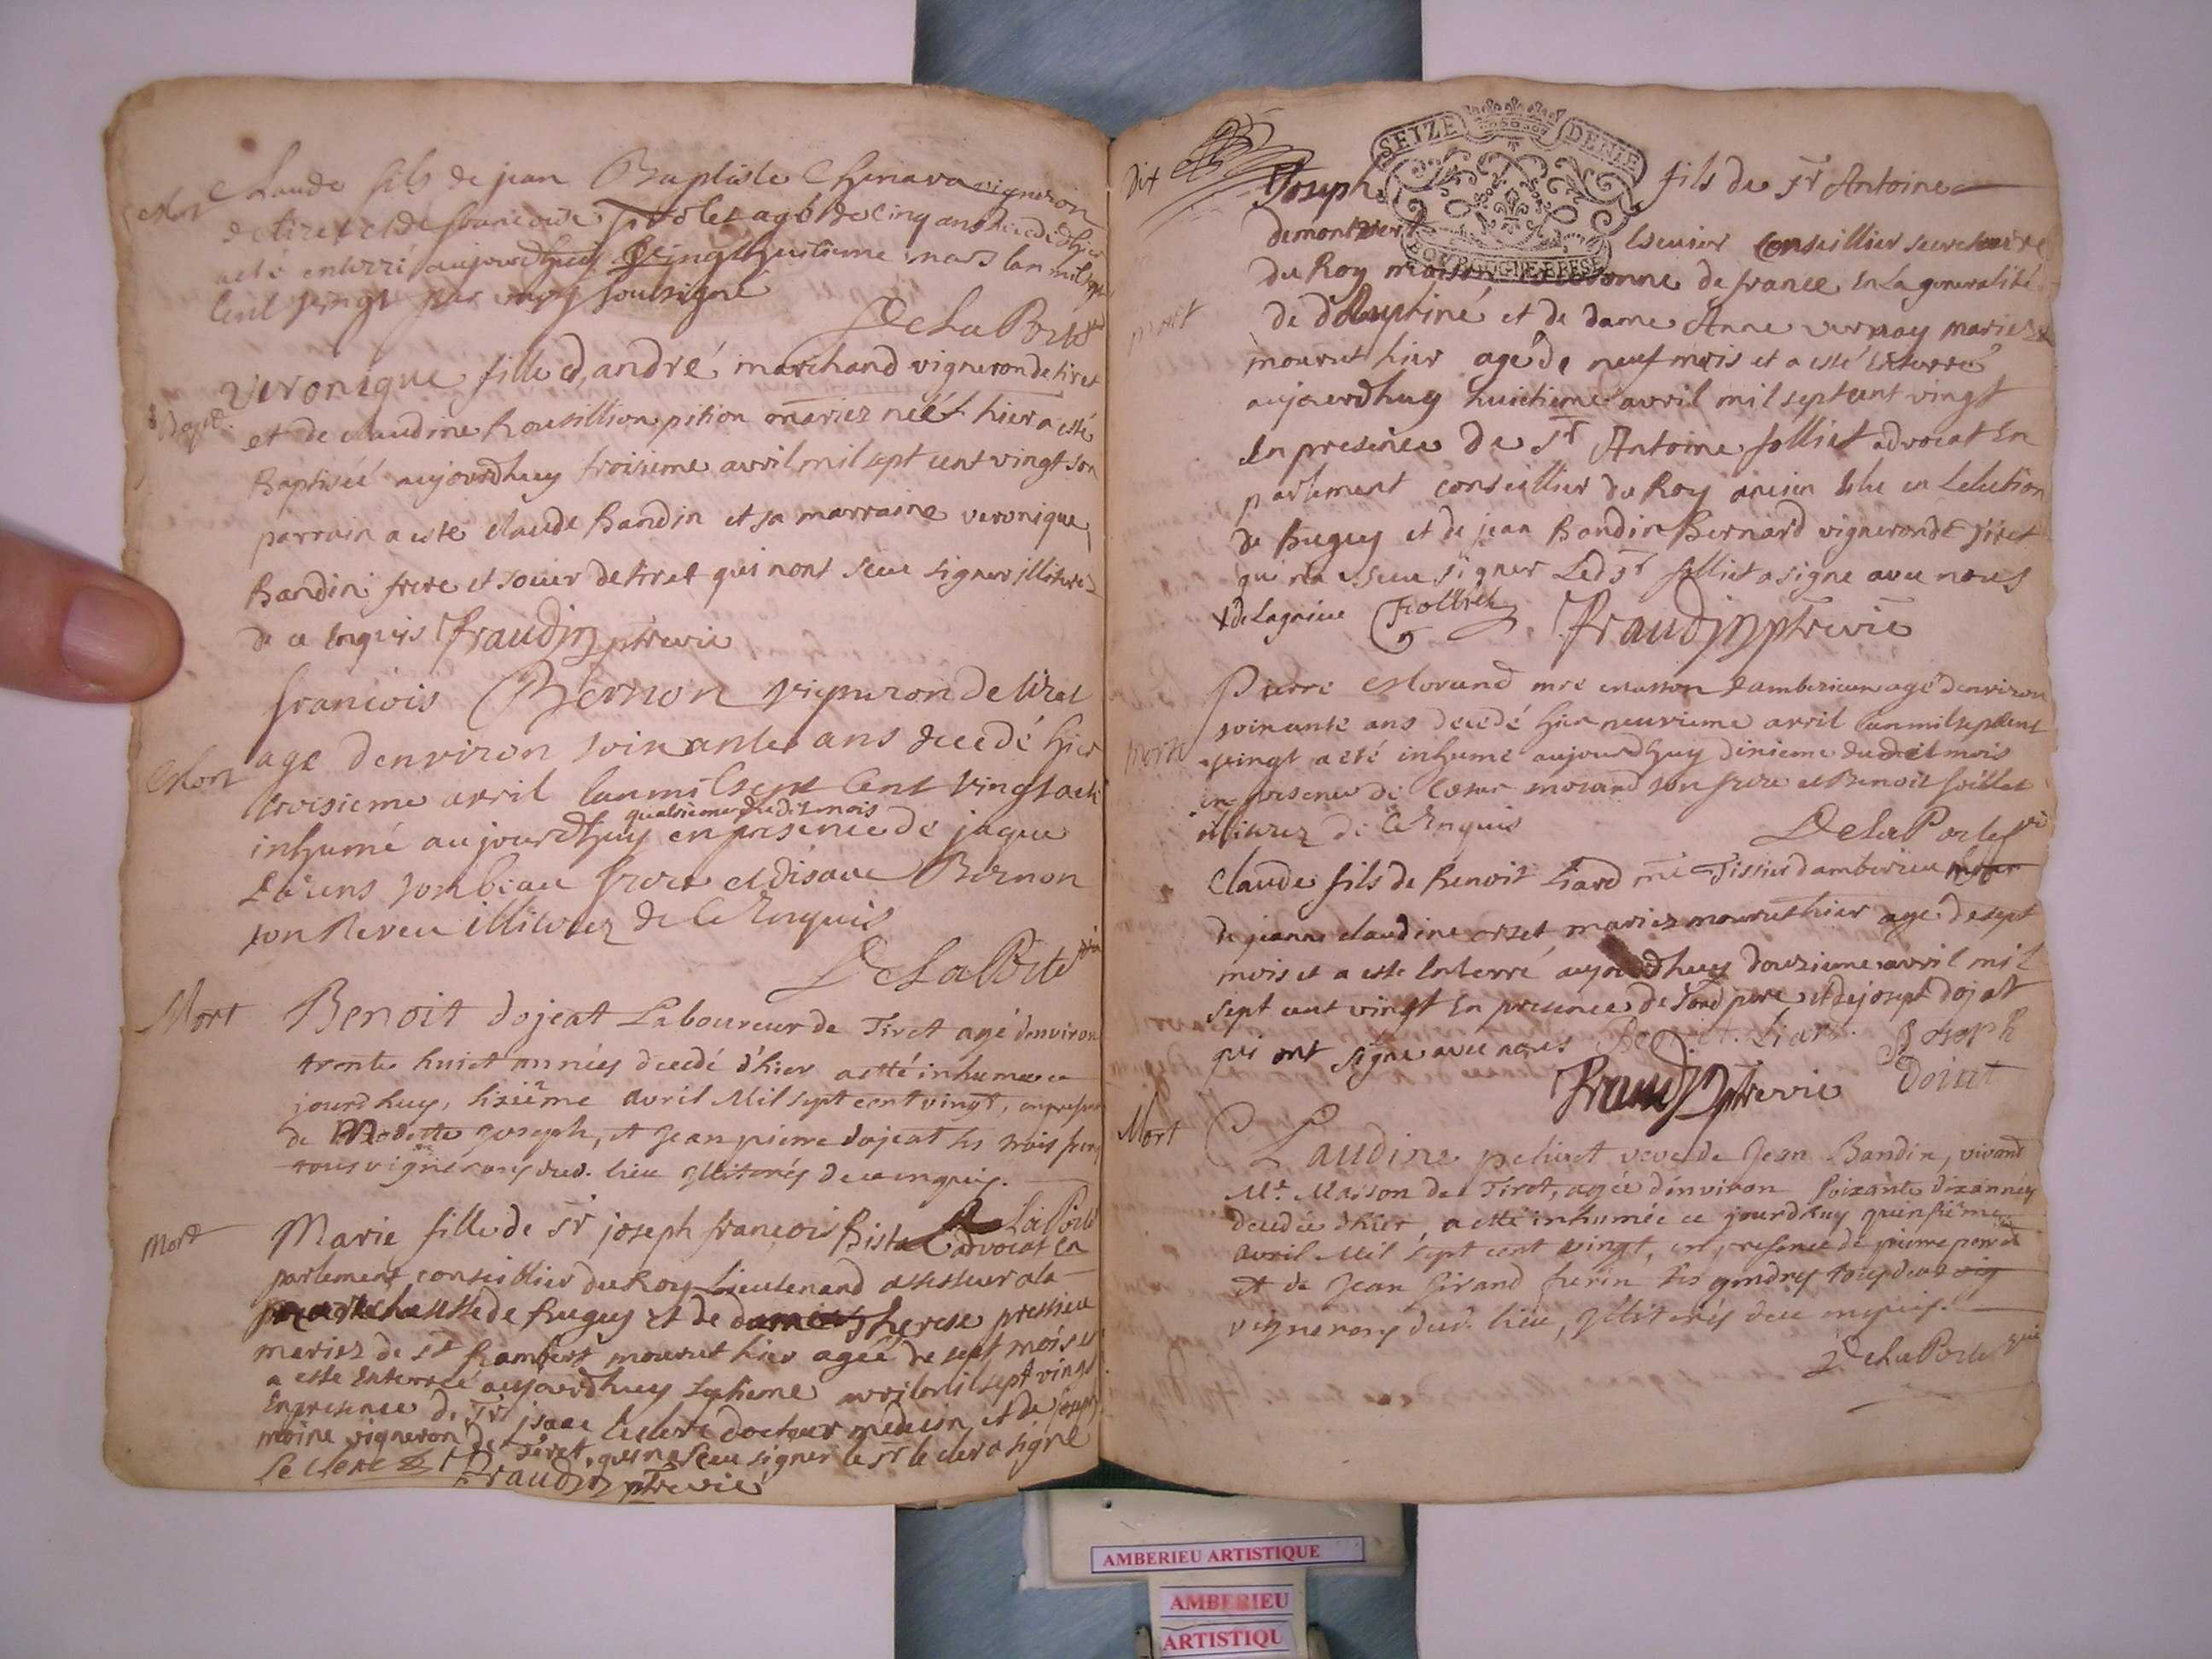 Mort
Claude fils de jean Baptiste Chenava vigneron
de tiret et de francoise agé de cinq ans decedé hier
a eté enterré aujourdhuy vingt huitieme mars lan mil sept
cent vingt par moy soussigné
DeLaPorte
Bapt.
Veronique fille d'andré marchand vigneron de tiret
et de claudine Rousillion pition mariez néé hier a esté
Baptiséé aujourdhuy troisieme avril mil sept cent vingt son
parrain a esté claude Bandin et sa marraine veronique
Bandin frere et soeur de tiret qui nont sceu signer illiteres
de ce enquis Fraudin ptre vic
francois Bernon vigneron de tiret
Mort
agé denviron soixante ans decedé hier
troisieme avril lan mil sept cent vingt a eté
quatrieme dudit mois
inhumé aujourdhuy en presence de jaque
son beau frere et disaac Bernon
son Neveu illiterez de ce Enquis
DeLaPorte vic
Mort
Benoit dojeat Laboureur de Tiret agé denviron
trente huict années decedé d'hier a etté inhumé ce
jourdhuy, sixième avril Mil sept cent vingt, en presence
de Modeste Joseph, et Jean pierre dojeat ses trois freres
tous vignerons dud. lieu illiterés de ce enquis.
DeLaPorte
Mort
Marie fille de Sr joseph francois advocat En
parlement conseillier du Roy Lieutenand assesseur a la
marechaussé de Bugey et de dame therese pressieu
mariez de St Rambert mourut hier agéé de sept mois et
a esté Enterréé aujourdhuy septieme avril mil sept vingt
En presence de Sr isaac leclerc docteur médecin et de joseph
moine vigneron de Tiret, qui na sceu signer le Sr le clerc a signé
Leclerc Fraudin ptre vic
Dix
SEIZE DENIE
BOURGOGNE BRESSE
Joseph fils de Sr Antoine
demontvert Escuier Conseillier secretaire
du Roy maison couronne de france En La generalité
mort
de dauphiné et de dame Anne vernay mariez
mourut hier agé de neuf mois et a esté Enterré
aujourdhuy huictieme avril mil sept cent vingt
En presence de Sr Antoine folliet advocat En
parlement conseillier du Roy ancien Elu en Lelection
de Bugey et de jean Bandin Bernard vigneron de Tiret
qui na sceu signer Led Sr folliet a signé avec nous
Folliet Fraudin ptre vic
Pierre Morand mre masson damberieu agé denviron
soixante ans decedé hier neuvieme avril lan mil sept cent
mort
vingt a eté inhumé aujourdhuy dixieme dudit mois
en presence de Cesar morand son frere et Benoit
illiterez de ce Enquis
DeLaPorte vic
Claude fils de Benoit Liard me Tissier damberieu
de jeanne claudine orset mariez mourut hier agé de sept
mois et a esté Enterré aujourdhuy douzieme avril mil
sept cent vingt En presence de sond pere et de joseph dojat
qui ont signé avec nous Benoit Liard Joseph
Fraudin ptre vic Doiat
Mort
Claudine peliuet veve de Jean Bandin, vivant
Mt. Maison de Tiret, agée d'environ soixante dix années
decedée d'hier, a etté inhumée ce jourdhuy quinsième
avril Mil sept cent vingt, en presence de pierre
et de Jean Girand furin ses gendres
vignerons dud. lieu, illiterés de ce enquis.
DeLaPorte vic
AMBERIEU ARTISTIQUE
AMBERIEU
ARTISTIQU